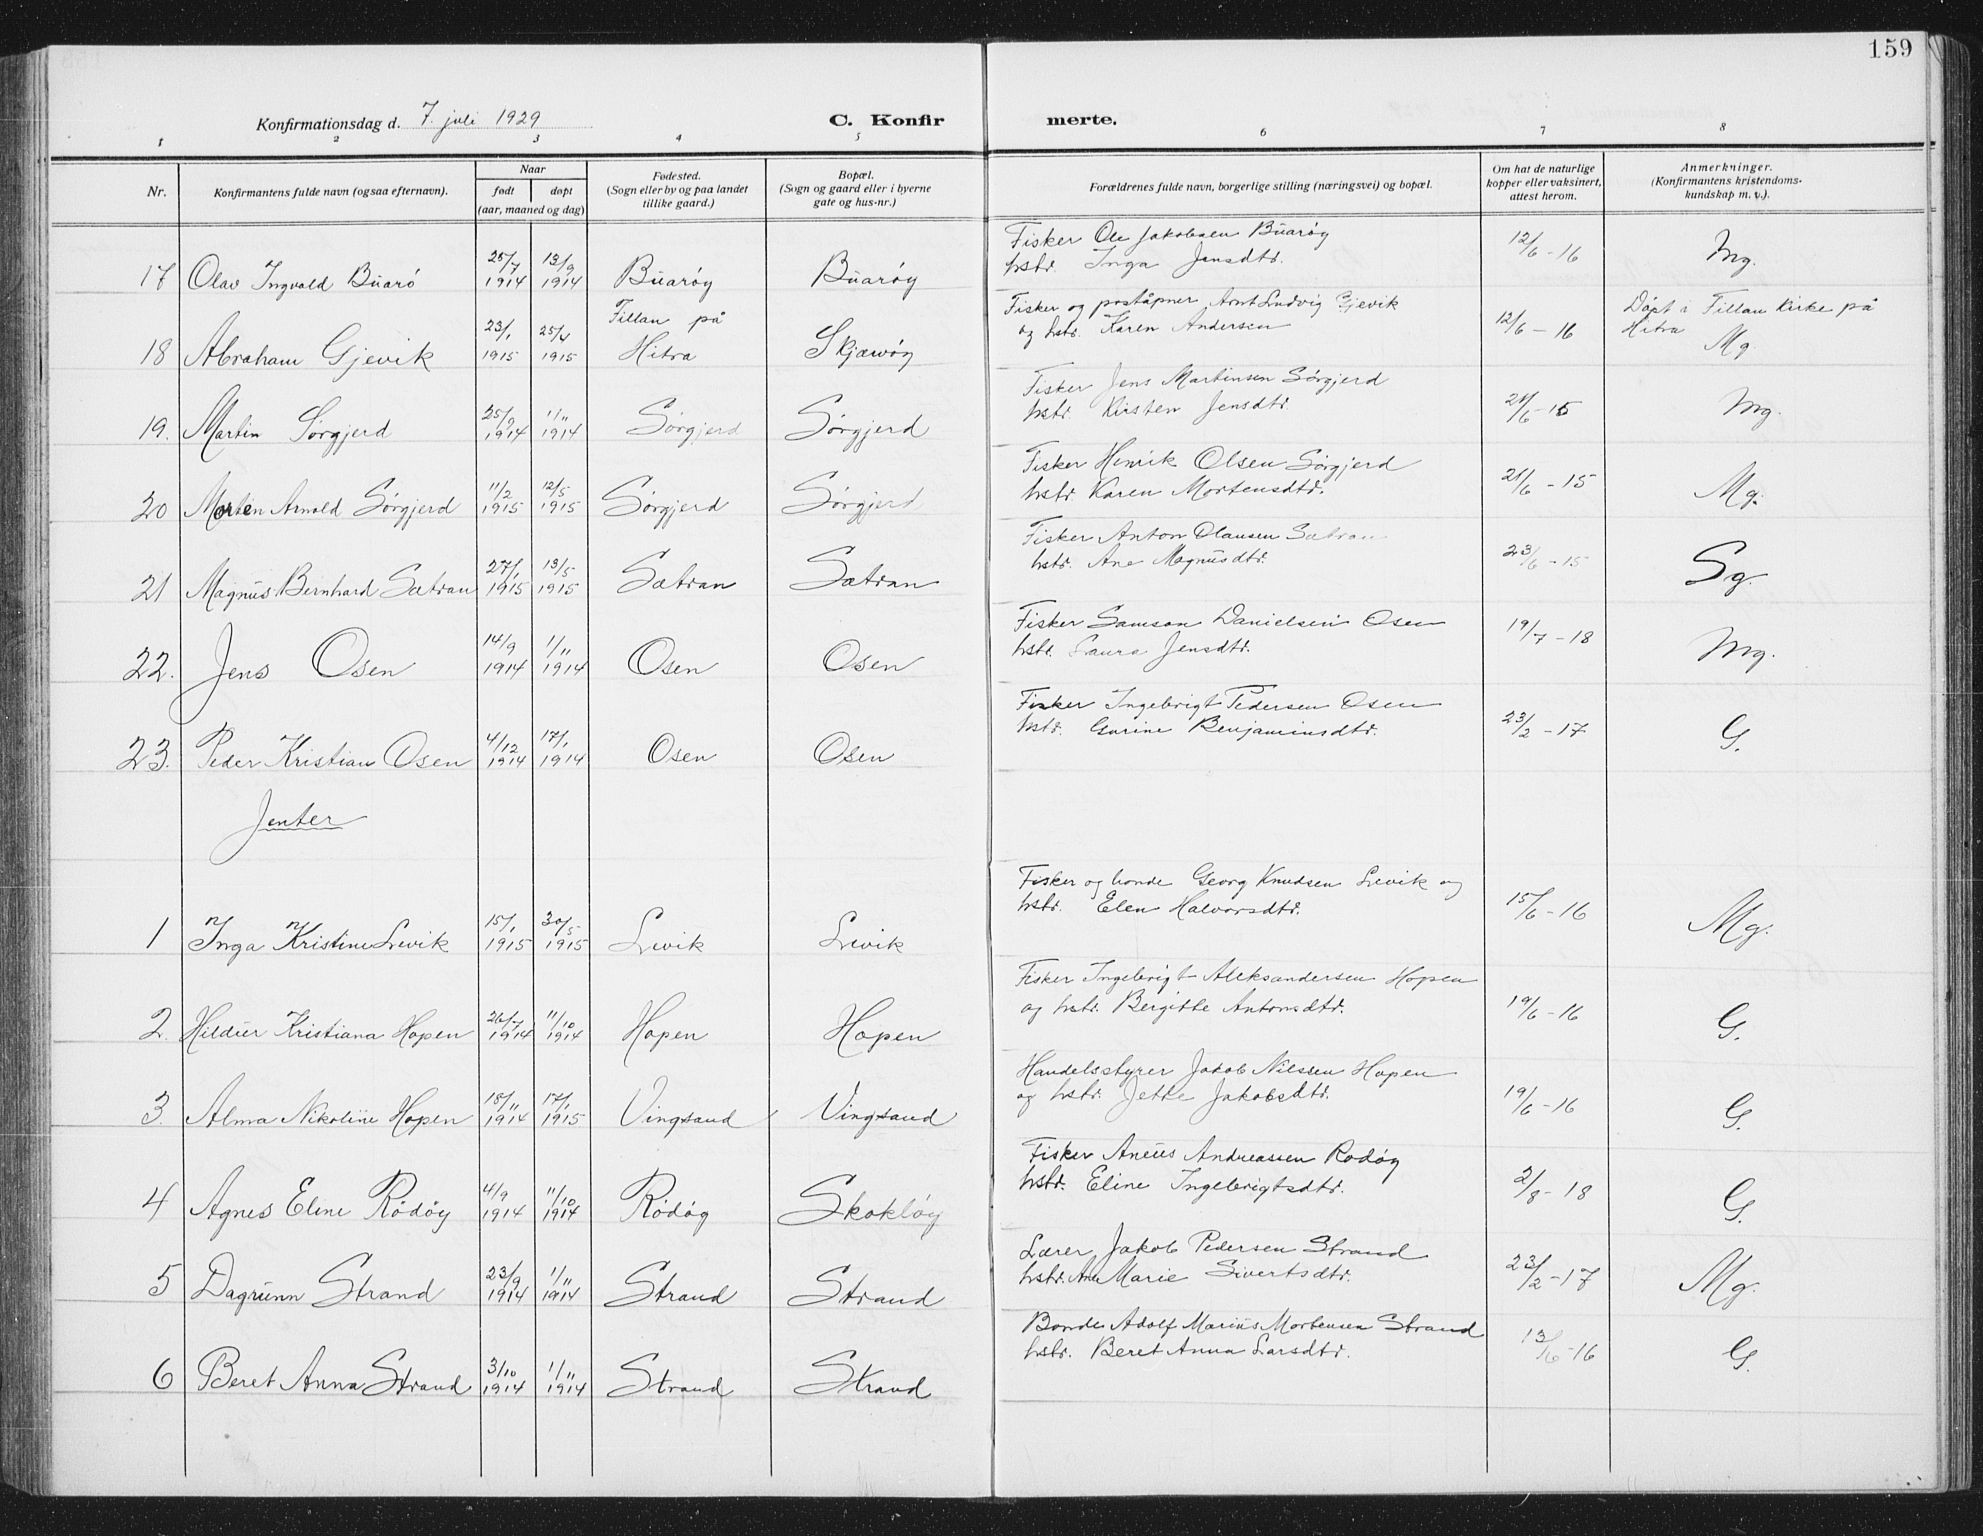 159
Konfirmationsdag d. 7. juli 1929 C. Konfirmerte.
1 2 3 4 5 6 7 8
Nr. Konfirmantens fulde navn (ogsaa efternavn). Naar født døpt (aar, maaned og dag) Fødested. (Sogn eller by og paa landet tillike gaard.) Bopæl. (Sogn og gaard eller i byerne gate og hus-nr.) Forældrenes fulde navn, borgerlige stilling (næringsvei) og bopæl. Om hat de naturlige kopper eller vaksinert, attest herom. Anmerkninger. (Konfirmantens kristendomskundskap m. v.).
17 Olav Ingvald Buarø 25/7 1914 13/9 1914 Buarøy Buarøy Fisker Ole Jakobsen Buarøy hstr. Inga Jensdtr. 12/6 - 16 Mg.
18 Abraham Gjevik 23/1 1915 25/4 1915 Fillan på Hitra Skjærvøy Fisker og poståpner Arnt Ludvig Gjevik og hstr. Karen Andersen 12/6 - 16 Døpt i Fillan kirke på Hitra Mg.
19. Martin Sørgjerd 25/9 1914 1/11 1914 Sørgjerd Sørgjerd Fisker Jens Martinsen Sørgjerd hstr. Kirsten Jensdtr. 21/6 - 15 Mg.
20 Morten Arnold Sørgjerd 11/2 1915 12/5 1915 Sørgjerd Sørgjerd Fisker Henrik Olsen Sørgjerd hstr. Karen Mortensdtr. 21/6 - 15 Mg.
21 Magnus Bernhard Sætran 27/1 1915 13/5 1915 Sætran Sætran Fisker Anton Olausen Sætran hstr. Ane Magnusdtr. 23/6 - 15 Sg.
22. Jens Osen 14/9 1914 1/11 1914 Osen Osen Fisker Samson Danielsen Osen hstr. Laura Jensdtr. 19/7 - 18 Mg.
23. Peder Kristian Osen 4/12 1914 17/1 1914 Osen Osen Fisker Ingebrigt Pedersen Osen hstr. Gurine Benjaminsdtr. 23/2 - 17 G.
Jenter
1 Inga Kristine Levik 15/1 1915 30/5 1915 Levik Levik Fisker og bonde Georg Knudsen Levik og hstr. Elen Halvorsdtr. 15/6 - 16 Mg.
2. Hildur Kristiana Hopen 26/7 1914 11/10 1914 Hopen Hopen Fisker Ingebrigt Aleksandersen Hopen og hstr. Bergitte Antonsdtr. 19/6 - 16 G.
3. Alma Nikoline Hopen 18/11 1914 17/1 1915 Vingsand Vingsand Handelsstyrer Jakob Nilssen Hopen og hstr. Jette Jakobsdtr. 19/6 - 16 G.
4 Agnes Eline Rødøy 4/9 1914 11/10 1914 Rødøy Skokløy Fisker Aneus Andreassen Rødøy hstr. Eline Ingebrigtsdtr. 2/8 - 18 G.
5 Dagrunn Strand 23/9 1914 1/11 1914 Strand Strand Lærer Jakob Pedersen Strand hstr. Ane Marie Sivertsdtr. 23/2 - 17 Mg.
6 Beret Anna Strand 3/10 1914 1/11 1914 Strand Strand Bonde Adolf Marius Mortensen Strand hstr. Beret Anna Larsdtr. 13/6 - 16 G.